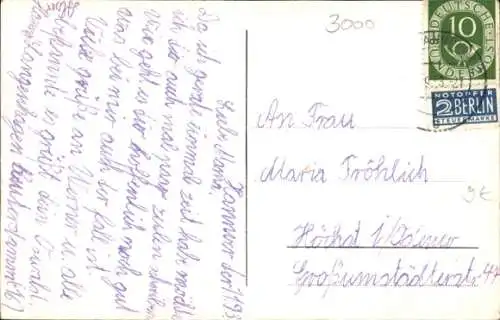 Hannover den 1.9.53
Liebe Mama!
Da ich gerade einmal Zeit hab, möchte
ich dir auch mal paar Zeilen schreiben
wie geht es dir hoffentlich noch gut
was bei mir auch der Fall ist.
Viele Grüße an Werner u. alle
Bekannte es grüßt dein Oswald
3000
DEUTSCHE
BUNDESPOST
10
NOTOPFER
2 BERLIN
STEUERMARKE
An Frau
Maria Fröhlich
Höchst i/Odenw
Großumstädterstr. 47